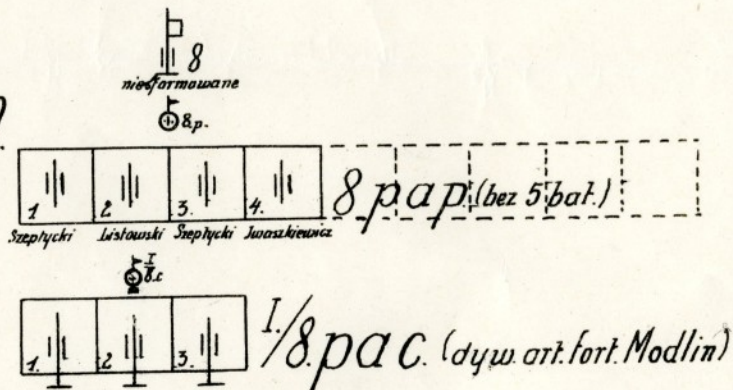 8
niesformowane
8.p.
1 2 3. 4. 8 pap. (bez 5 bat.)
Szeptycki Listowski Szeptycki Iwaszkiewicz
I
8.c
1. 2 3. I./8. pac. (dyw. art. fort. Modlin)